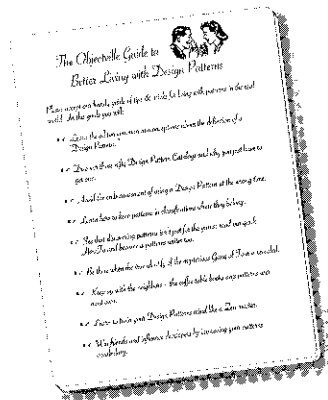 The Objectville Guide to
Better Living with Design Patterns
Please accept our handy guide of tips & tricks for living with patterns in the real
world. In this guide you will:
Learn the all too common misconceptions about the definition of a
Design Pattern.
Discover those nifty Design Pattern Catalogs and why you just have to
get one.
Avoid the embarrassment of using a Design Pattern at the wrong time.
Learn how to keep patterns in classifications where they belong.
See that discovering patterns isn't just for the gurus; read our quick
HowTo and become a patterns writer too.
Be there when the true identity of the mysterious Gang of Four is revealed.
Keep up with the neighbors - the coffee table books any patterns user
must own.
Learn to train your Design Patterns mind like a Zen master.
Win friends and influence developers by improving your patterns
vocabulary.